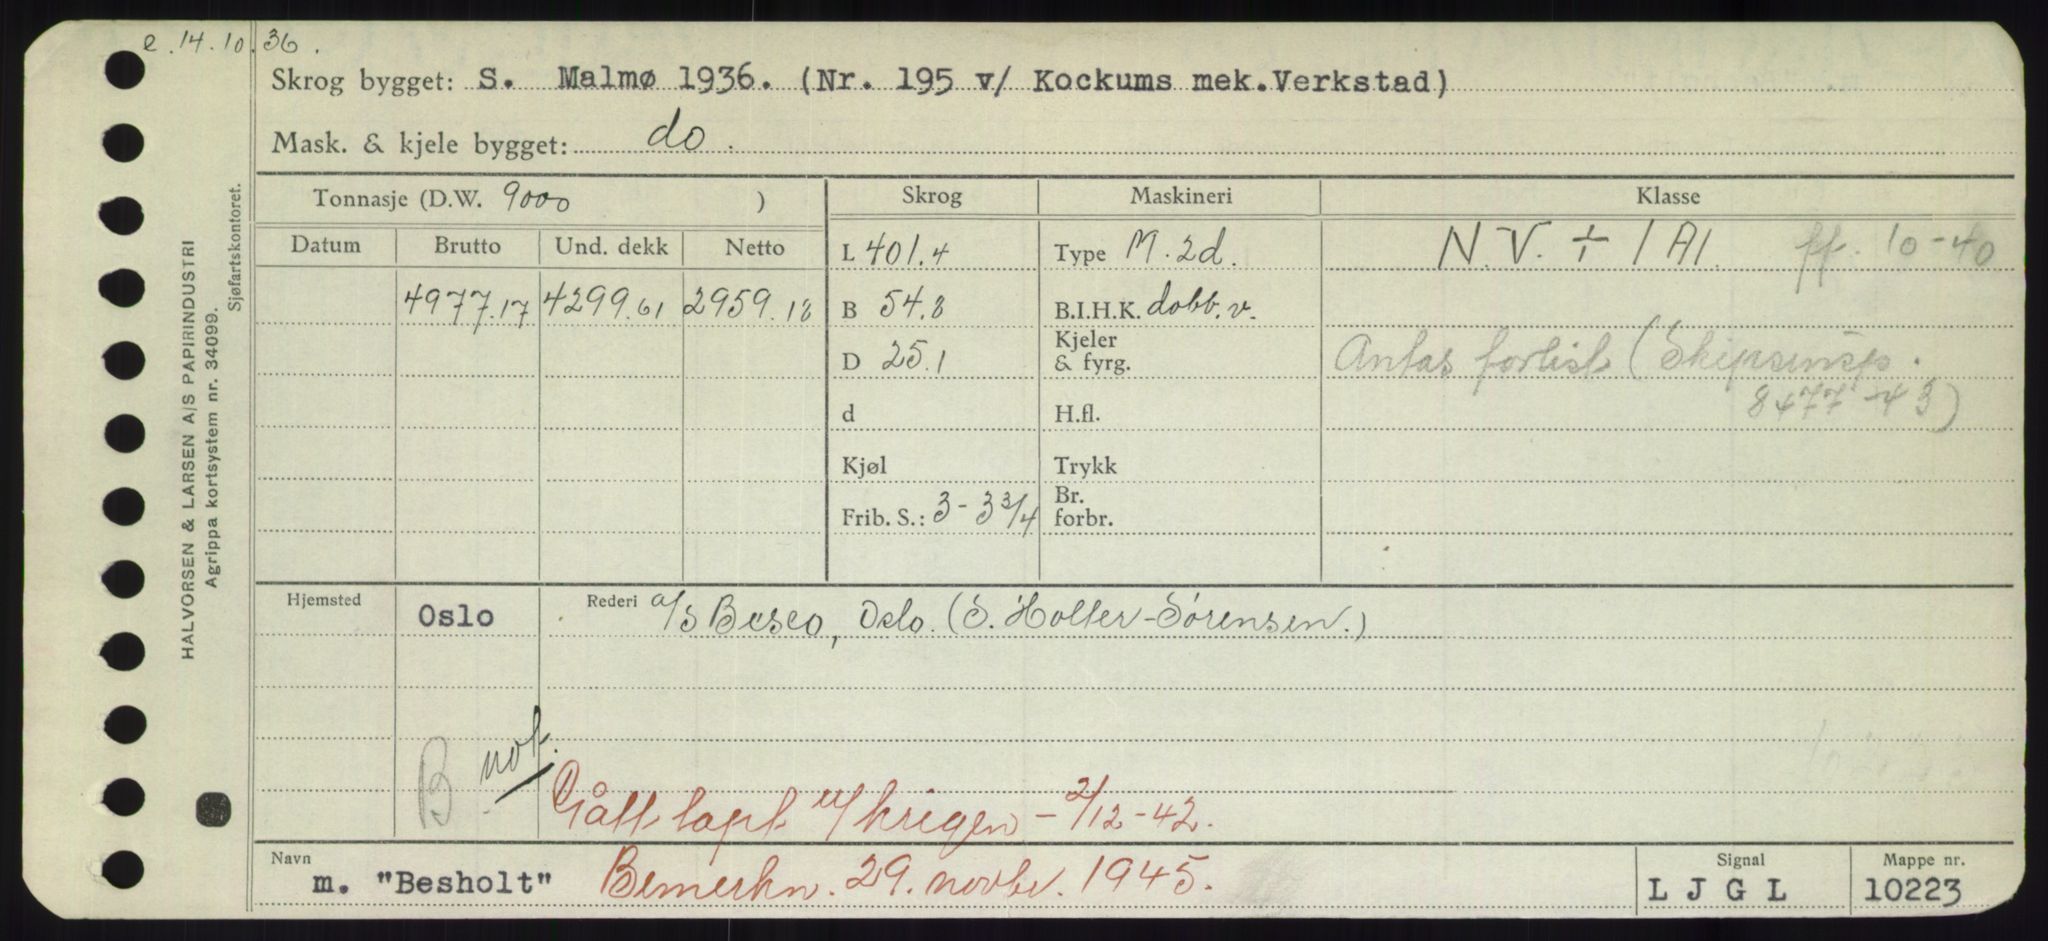 e. 14.10.36.
Skrog bygget: S. Malmø 1936. (Nr. 195 v/ Kockums mek.Verkstad)
Mask. & kjele bygget: do.
Tonnasje (D.W. 9000 )
Skrog
Maskineri
Klasse
Datum
Brutto
Und. dekk
Netto
4977.17
4299.61
2959.18
L 401.4
B 54.8
D 25.1
d
Kjøl
Frib. S.: 3 - 3 3/4
Type M. 2d.
B.I.H.K. dobb. v.
Kjeler
& fyrg.
H.fl.
Trykk
Br.
forbr.
N.V. ÷ 1A1. ff. 10-40
Antas forlist (Skipsinsp.
8477-43)
Hjemsted
Oslo
Rederi A/S Besco, Oslo. (S. Holter-Sørensen.)
B not.
Gått tapt u/krigen - 2/12-42.
Navn
m. "Besholt" Bemerkn. 29. novbr. 1945.
Signal
L J G L
Mappe nr.
10223
HALVORSEN & LARSEN A/S PAPIRINDUSTRI
Agrippa kortsystem nr. 34099.
Sjøfartskontoret.